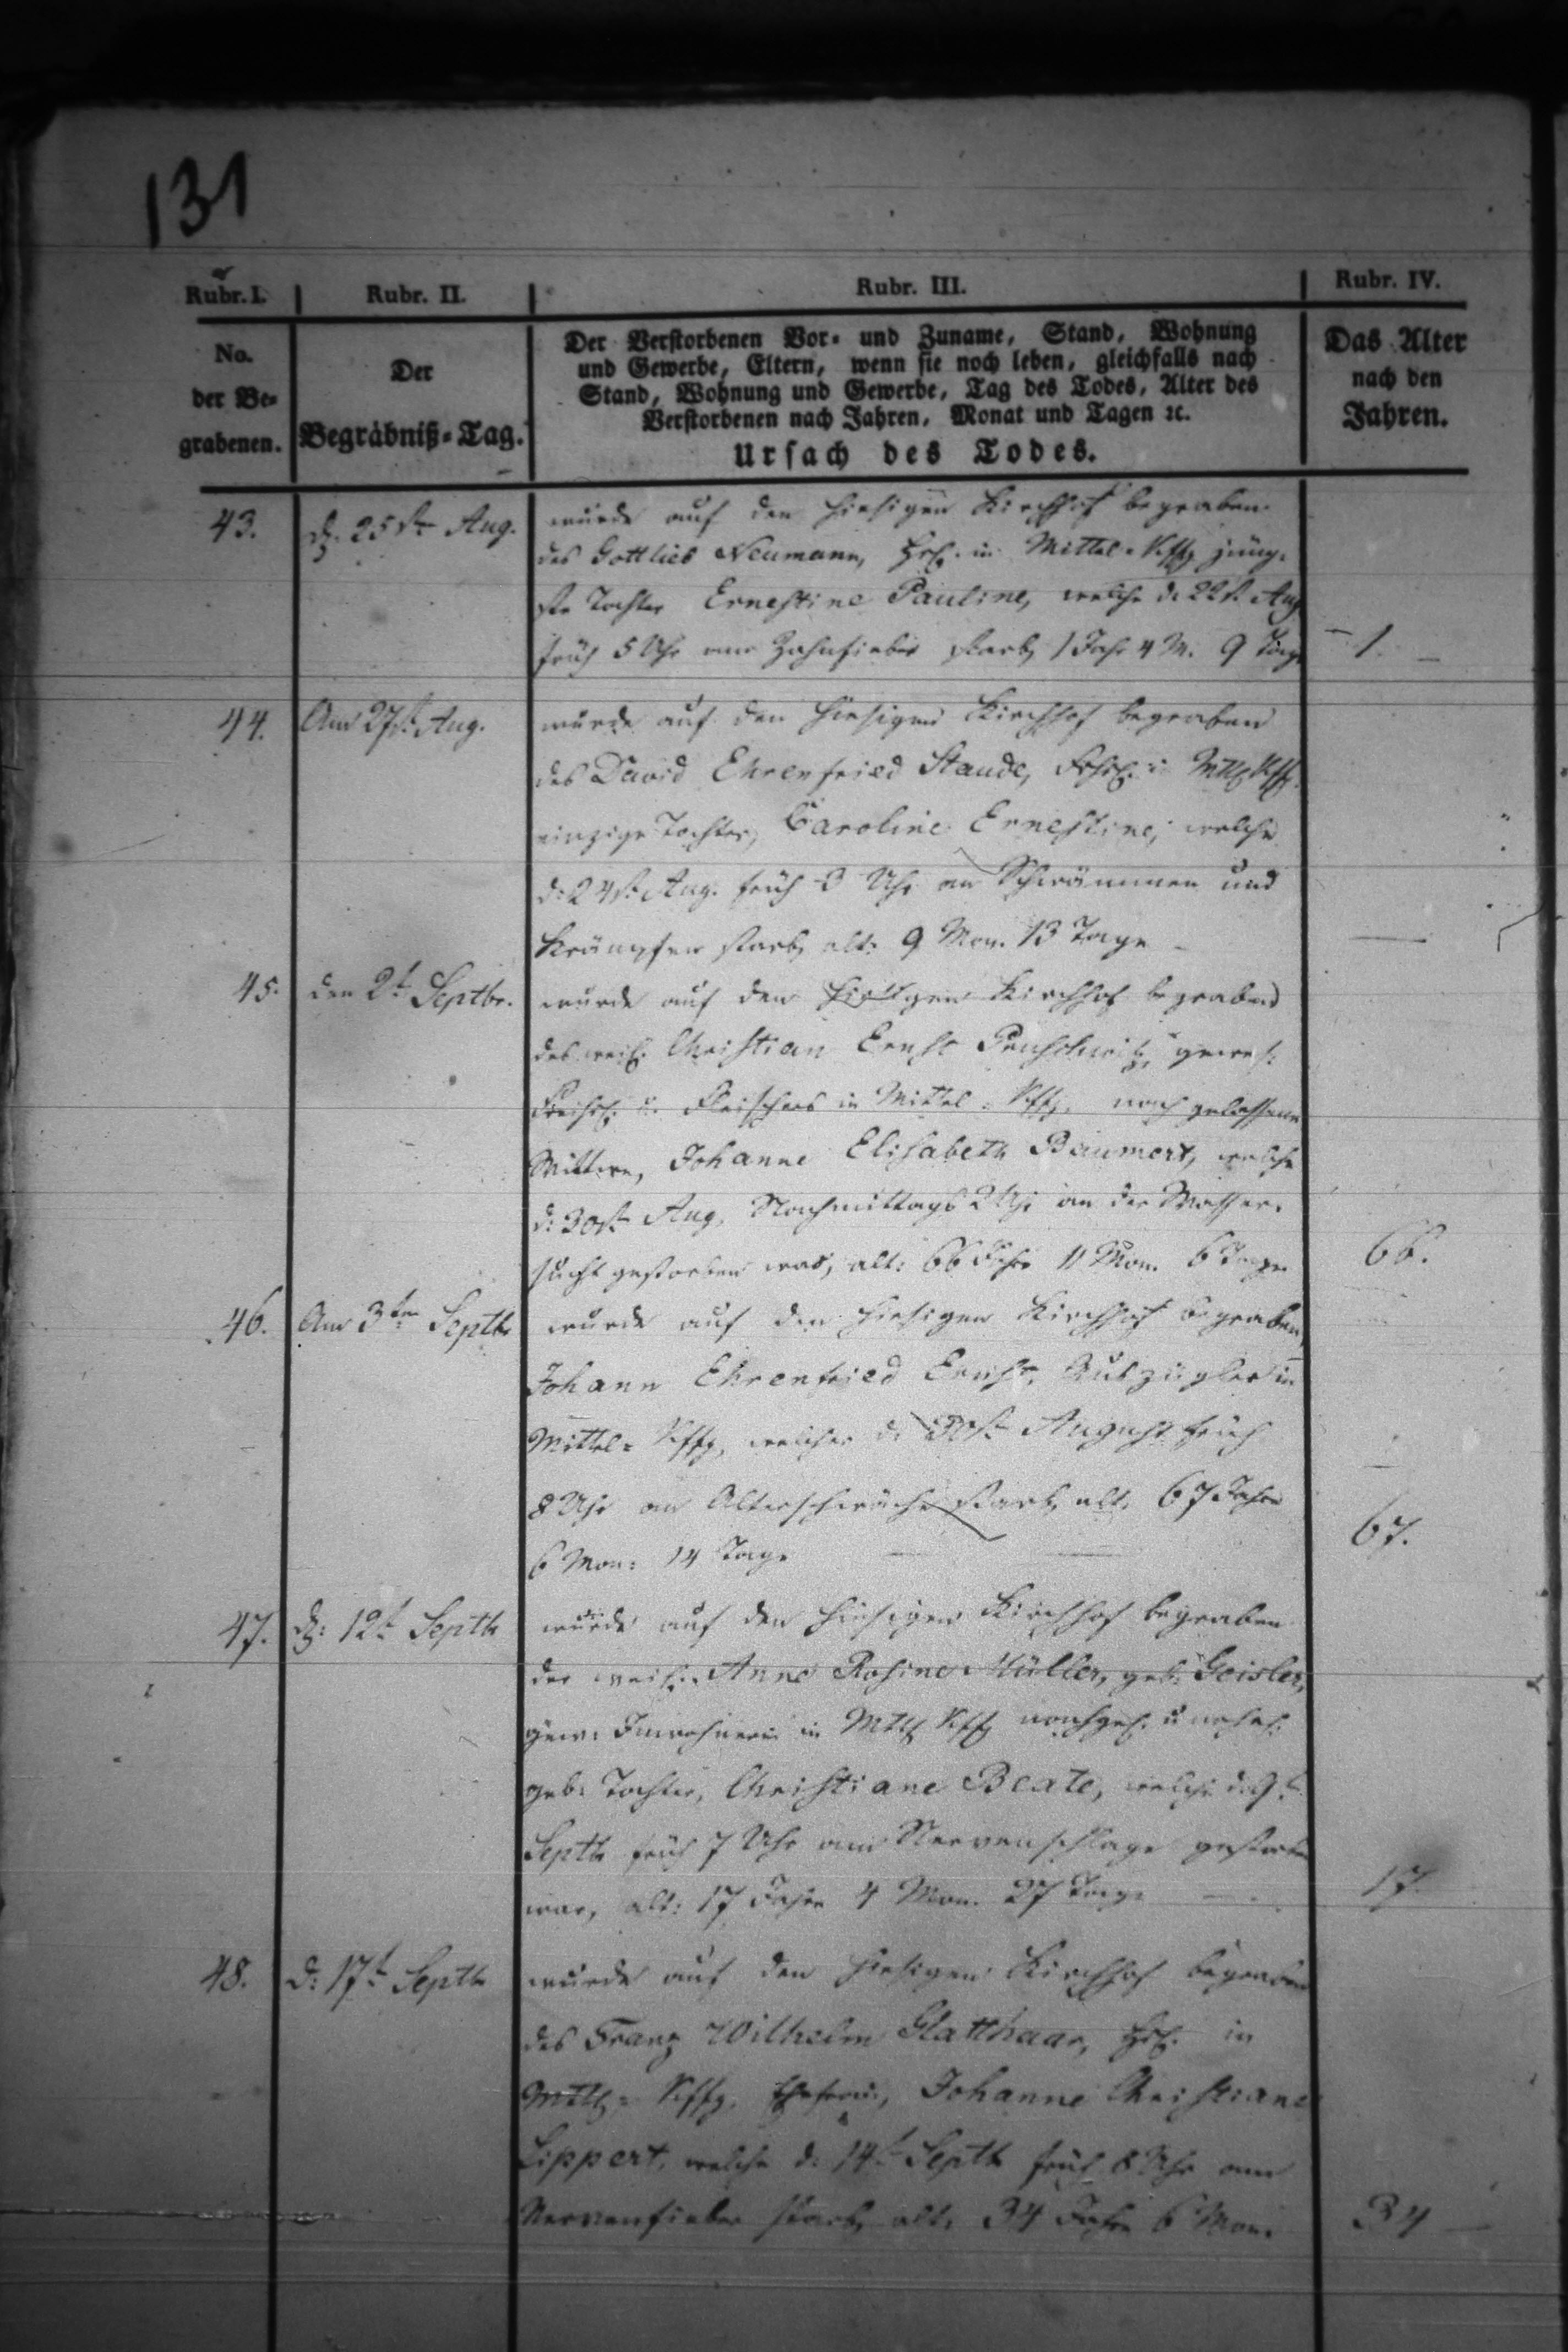 131
Rubr. I. Rubr. II. Rubr. III. Rubr. IV.
No. der Begrabenen.
Der Begräbniß-Tag.
Der Verstorbenen Vor- und Zuname, Stand, Wohnung
und Gewerbe, Eltern, wenn sie noch leben, gleichfalls nach
Stand, Wohnung und Gewerbe, Tag des Todes, Alter des
Verstorbenen nach Jahren, Monat und Tagen ꝛc.
Ursach des Todes.
Das Alter
nach den
Jahren.
43. d. 25st. Aug. wurde auf den hiesigen Kirchhof begraben
des Gottlieb Neumann, in Mittel-Kffg jüng-
ste Tochter Ernestine Pauline, welche d. 22st. Aug
früh 5 Uhr am Zahnfieber starb, 1 Jahr 4 M. 9 Tage 1.
44. Am 27st. Aug. wurde auf den hiesigen Kirchhof begraben
des David Ehrenfried Staude, Mttl Kffg
einzige Tochter, Caroline Ernestine, welche
d: 24st. Aug. früh 3 Uhr an Schwämmen und
Krämpfen starb, alt: 9 Mon. 13 Tage
45. den 2t. Septbr. wurde auf den hiesigen Kirchhof begraben
des weil. Christian Ernst gewes.
u. Fleischers in Mittel-Kffg. nachgelassene
Wittwe, Johanne Elisabeth Baumert, welche
d: 30st. Aug. Nachmittags 2 Uhr an der Wasser-
sucht gestorben war, alt: 66 Jahr 11 Mon. 6 Tage 66.
46. Am 3ten Septb wurde auf den hiesigen Kirchhof begraben,
Johann Ehrenfried Ernst, Auszügler in
Mittel-Kffg, welcher d. 30st. August früh
8 Uhr an Altersschwäche starb, alt. 67 Jahre
6 Mon: 14 Tage 67.
47. d: 12t. Septb wurde auf den hiesigen Kirchhof begraben
der weil. Anne Rosine Müller, geb. Geisler,
gew. Inwohnerin in Mttl Kffg nachgel. unehel.
geb. Tochter, Christiane Beate, welche d. 9t.
Septb früh 7 Uhr am Nervenschlage gestorben
war, alt: 17 Jahre 4 Mon. 27 Tage 17.
48. d: 17t. Septb wurde auf den hiesigen Kirchhof begraben
des Franz Wilhelm Glatthaar, in
Mttl-Kffg. Ehefrau, Johanne Christiane
Lippert, welche d. 14t. Septb früh 8 Uhr am
Nervenfieber starb, alt. 34 Jahre 6 Mon. 34